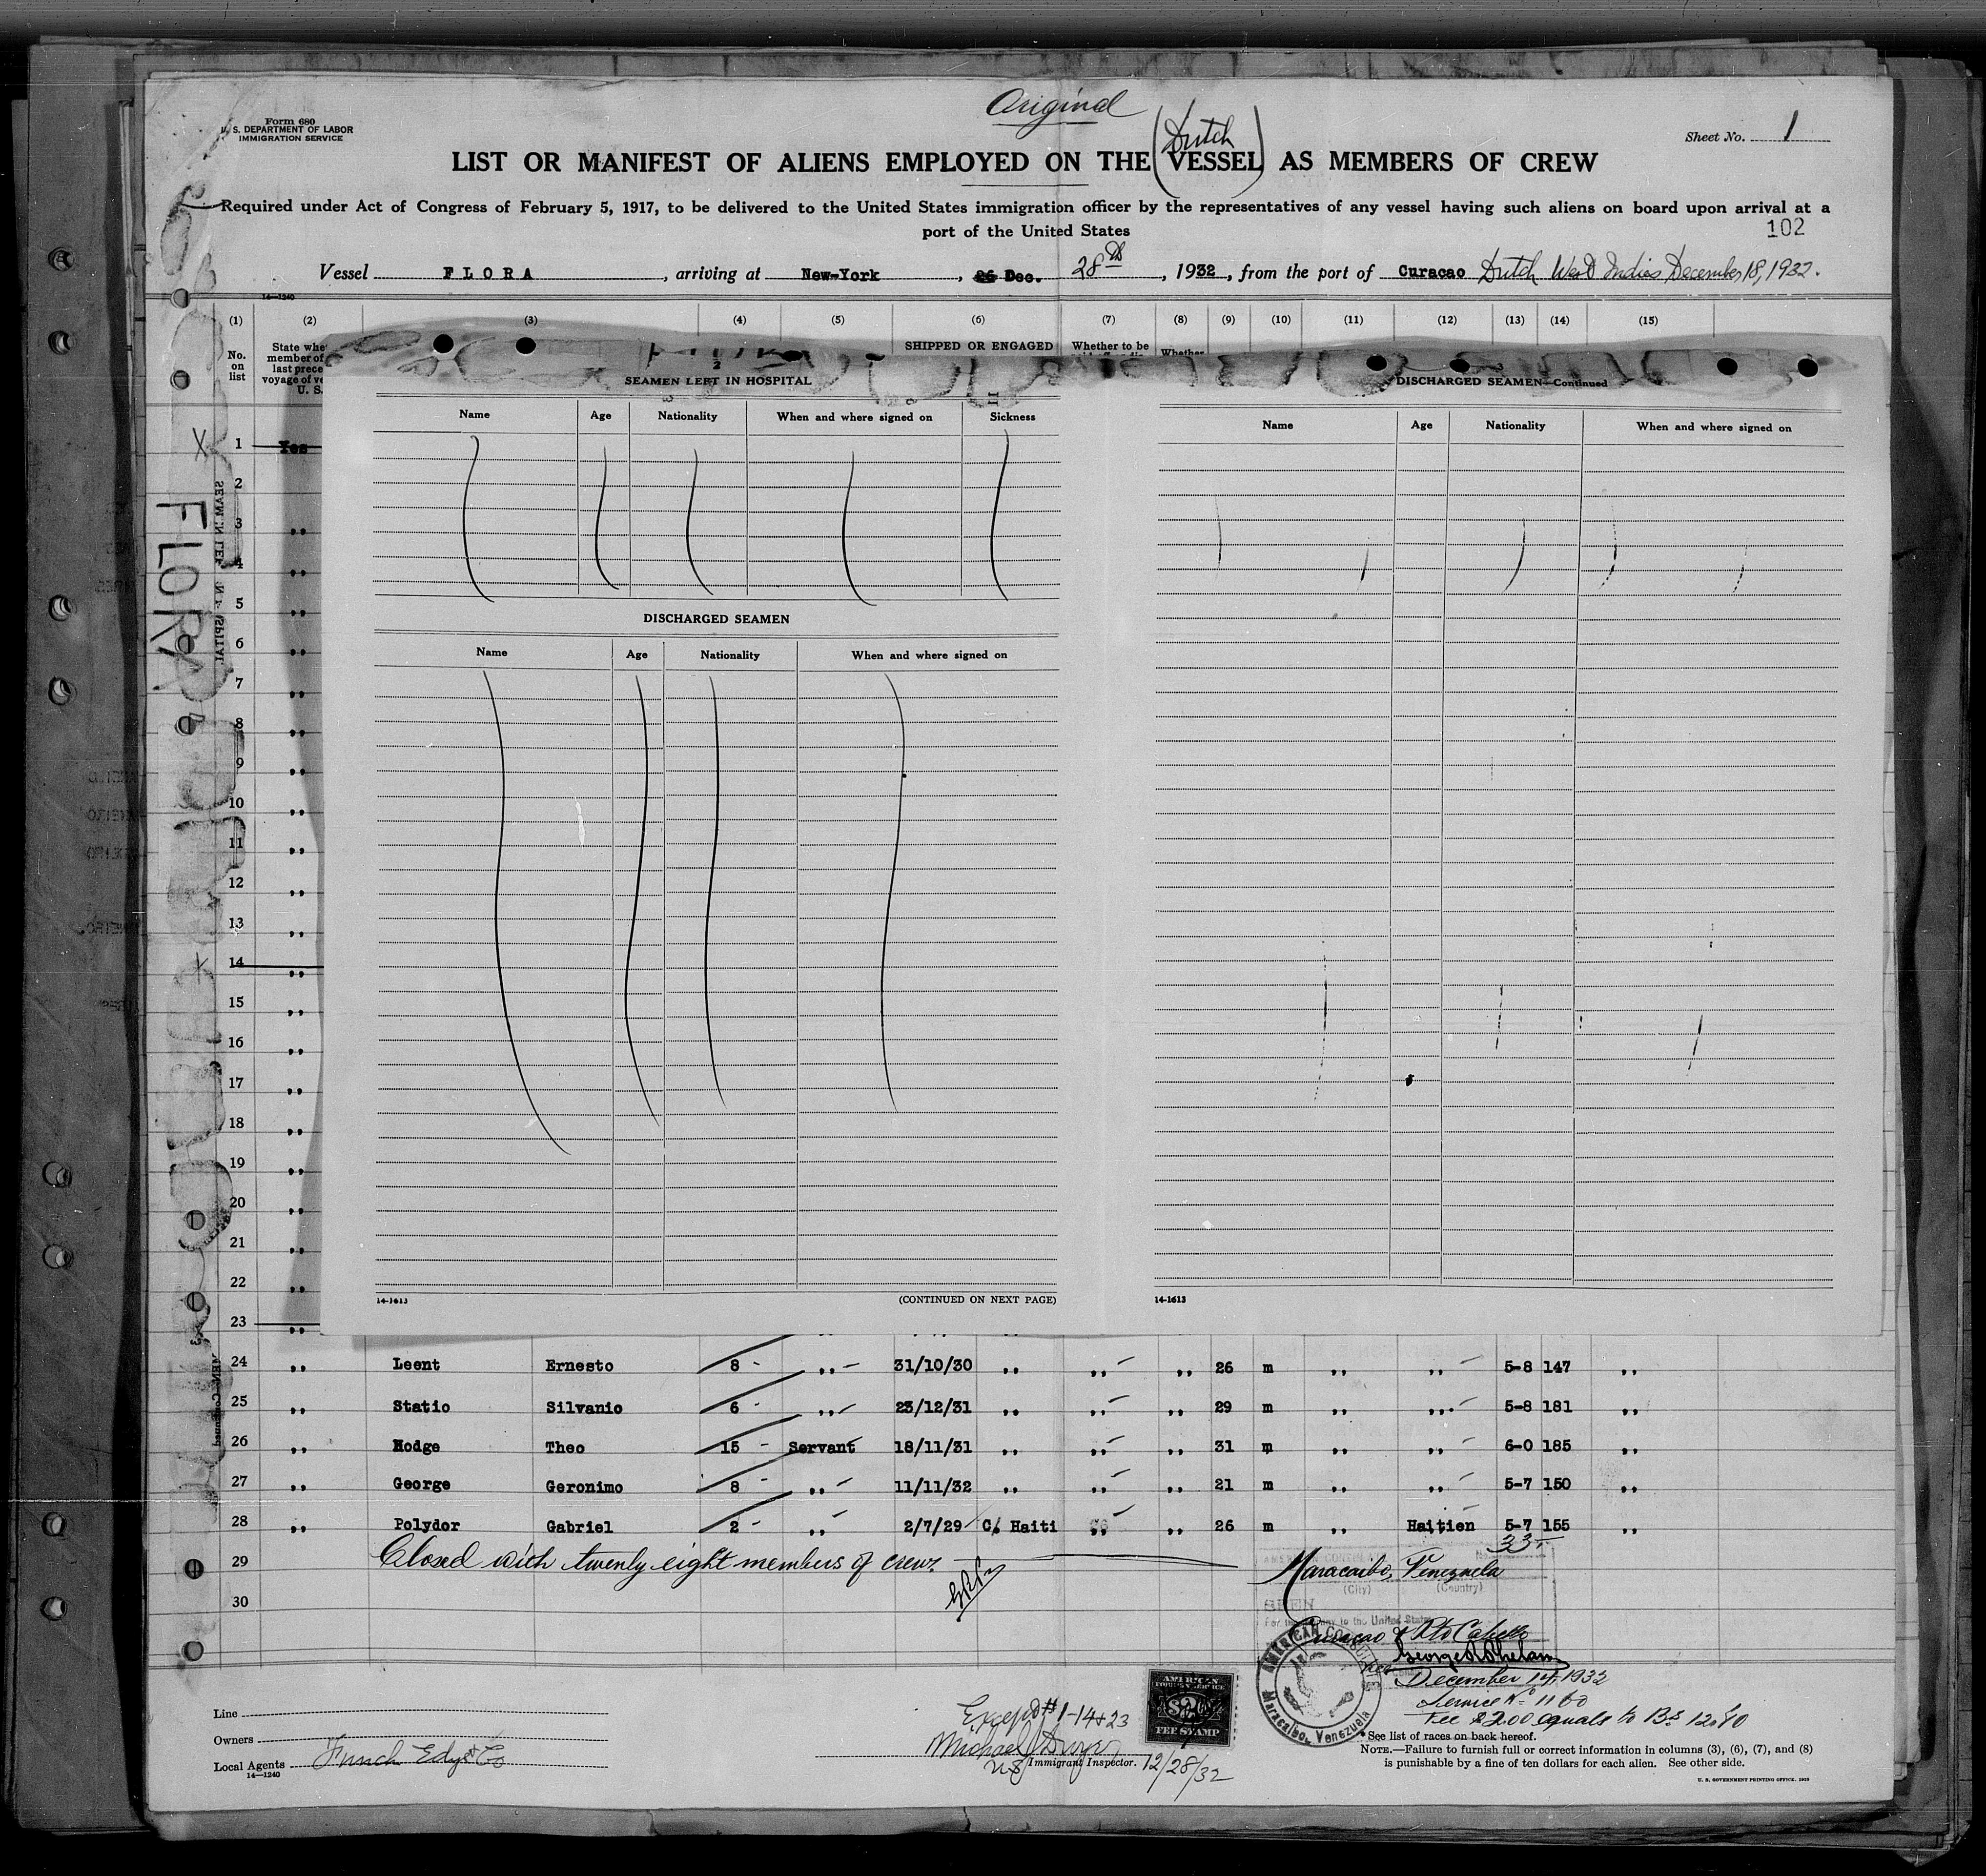 Original
Form 680
U. S. DEPARTMENT OF LABOR
IMMIGRATION SERVICE
Sheet No. 1
(Dutch)
LIST OR MANIFEST OF ALIENS EMPLOYED ON THE VESSEL AS MEMBERS OF CREW
Required under Act of Congress of February 5, 1917, to be delivered to the United States immigration officer by the representatives of any vessel having such aliens on board upon arrival at a
port of the United States
102
Vessel FLORA, arriving at New-York, 26 Dec. 28th, 1932, from the port of Curacao Dutch West Indies December 18, 1932.
14-1240
(1) (2) (3) (4) (5) (6) (7) (8) (9) (10) (11) (12) (13) (14) (15)
No. on list
State whe
member of
last prece
voyage of ve
U. S.
SHIPPED OR ENGAGED
Whether to be
Whether
SEAMEN LEFT IN HOSPITAL
Name Age Nationality When and where signed on Sickness
DISCHARGED SEAMEN
Name Age Nationality When and where signed on
14-1613
(CONTINUED ON NEXT PAGE)
DISCHARGED SEAMEN—Continued
Name Age Nationality When and where signed on
14-1613
FLORA
X 1 Yes
2
3 ,,
4 ,,
5 ,,
6 ,,
7 ,,
8 ,,
9 ,,
10 ,,
11 ,,
12 ,,
13 ,,
X 14 ,,
15 ,,
16 ,,
17 ,,
18 ,,
19 ,,
20 ,,
21 ,,
22 ,,
23 ,,
24 ,, Leent Ernesto 8 - ,, - 31/10/30 ,, ,, ,, 26 m ,, ,, 5-8 147 ,,
25 ,, Statio Silvanio 6 - ,, 23/12/31 ,, ,, ,, 29 m ,, ,, 5-8 181 ,,
26 ,, Hodge Theo 15 - Servant 18/11/31 ,, ,, ,, 31 m ,, ,, 6-0 185 ,,
27 ,, George Geronimo 8 - ,, 11/11/32 ,, ,, ,, 21 m ,, ,, 5-7 150 ,,
28 ,, Polydor Gabriel 2 - ,, 2/7/29 C. Haiti ,, ,, 26 m ,, Haitien 5-7 155 ,,
29 Closed with twenty eight members of crew.
30
Maracaibo, Venezuela
(City) (Country)
SEEN
For the journey to the United States
Curacao & Pto Cabello
George R Phelan
December 14, 1932
Service No 1160
Fee $2.00 equals to Bs 12.80
AMERICAN CONSULATE
Maracaibo, Venezuela
AMERICAN
FOREIGN SERVICE
$2
FEE STAMP
Line
Owners
Local Agents Funch Edye & Co
14-1240
Except # 1-14 & 23
Michael J Dwyer
US Immigrant Inspector. 12/28/32
*See list of races on back hereof.
NOTE.—Failure to furnish full or correct information in columns (3), (6), (7), and (8)
is punishable by a fine of ten dollars for each alien. See other side.
U. S. GOVERNMENT PRINTING OFFICE